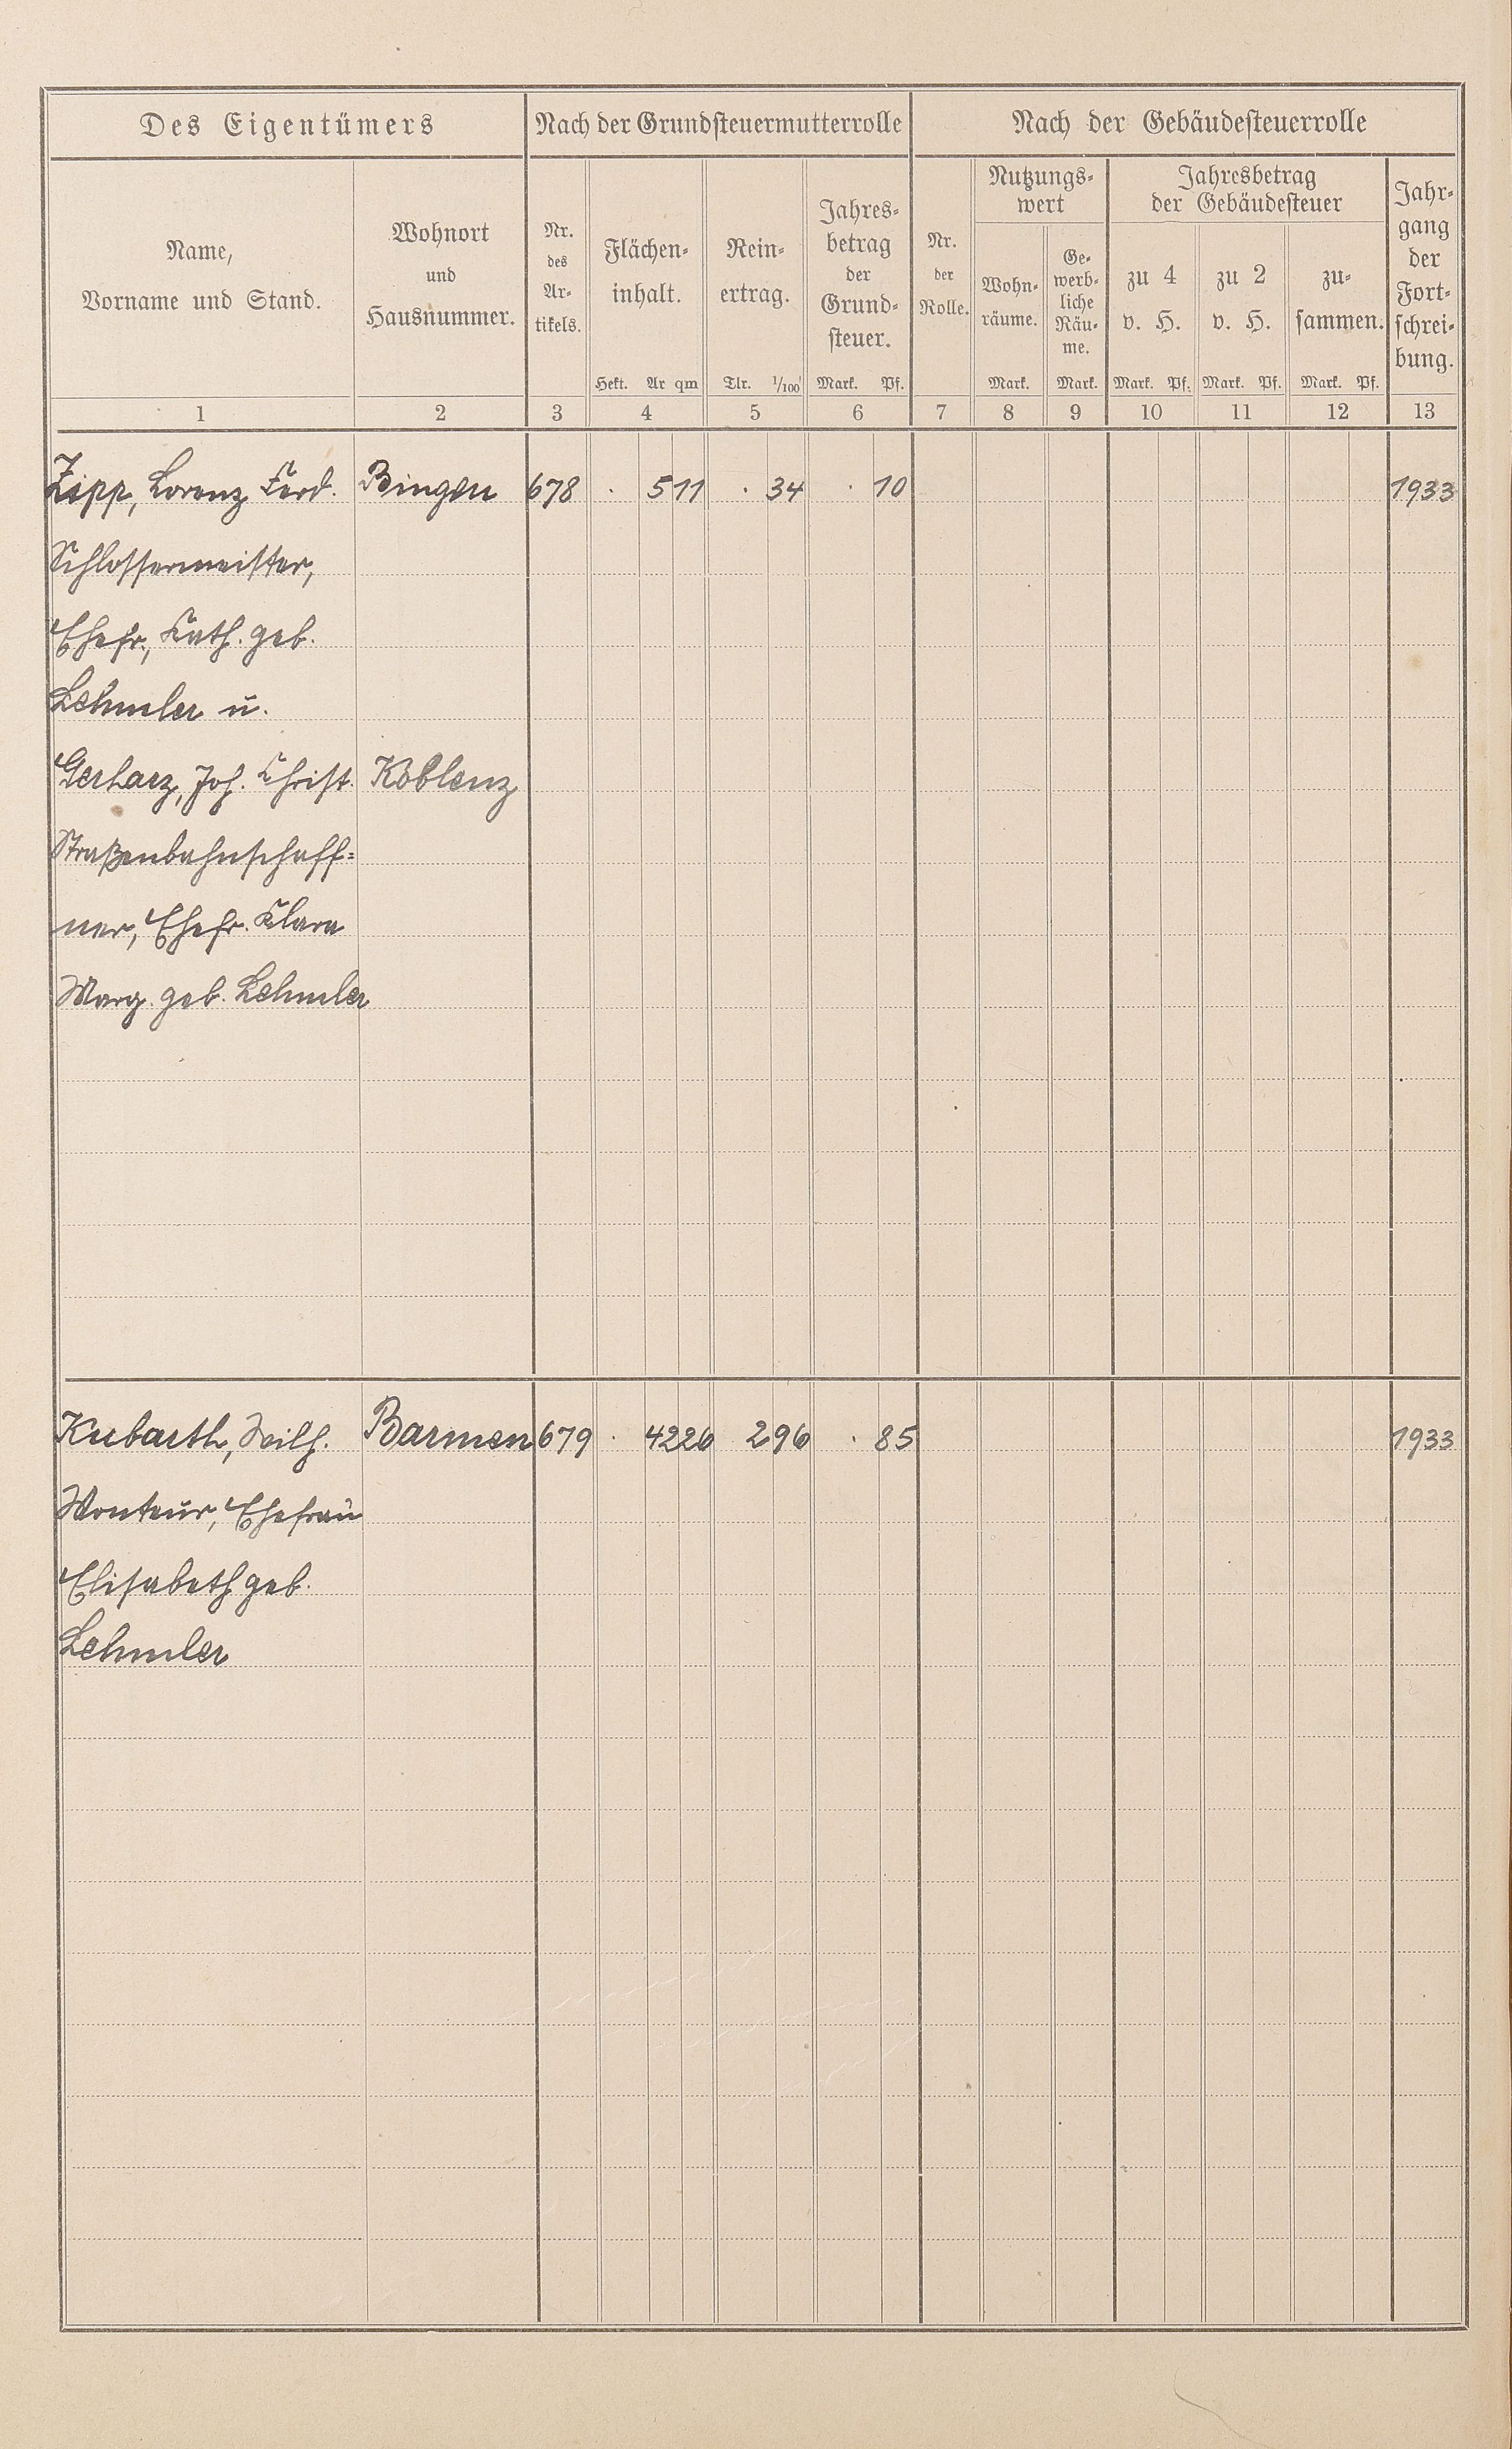 Des Eigentümers Nach der Grundsteuermutterrolle Nach der Gebäudesteuerrolle
Name,
Vorname und Stand.
Wohnort
und
Hausnummer.
Nr.
des
Ar-
tikels.
Flächen-
inhalt.
Hekt. Ar qm
Rein-
ertrag.
Tlr. 1/100
Jahres-
betrag
der
Grund-
steuer.
Mark. Pf.
Nr.
der
Rolle.
Nutzungs-
wert
Wohn-
räume.
Mark.
Ge-
werb-
liche
Räu-
me.
Mark.
Jahresbetrag
der Gebäudesteuer
zu 4
v. H.
Mark. Pf.
zu 2
v. H.
Mark. Pf.
zu-
sammen.
Mark. Pf.
Jahr-
gang
der
Fort-
schrei-
bung.
1 2 3 4 5 6 7 8 9 10 11 12 13
Zipp, Lorenz Ferd. Bingen 678 . 5 11 . 34 . 10 1933
Schlossermeister,
Ehefr., Kath. geb.
Lehmler u.
Gerharz, Joh. Christ. Koblenz
Straßenbahnschaff=
ner, Ehefr. Klara
Marg. geb. Lehmler
Kubarth, Wilh. Barmen 679 . 42 26 2 96 . 85 1933
Monteur, Ehefrau
Elisabeth geb.
Lehmler